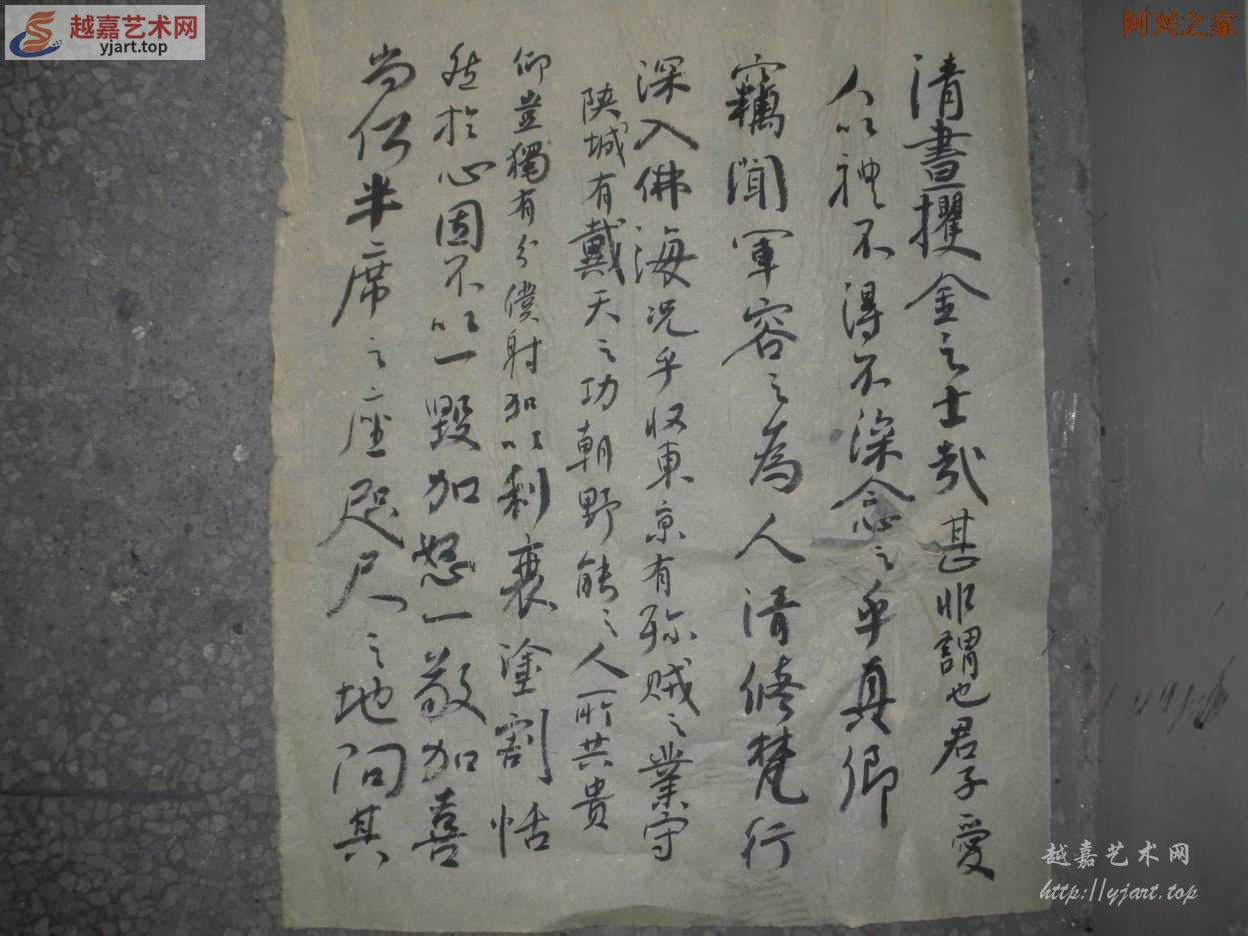 越嘉艺术网
yjart.top
阿兴之家
清晝攫金之士哉甚非謂也君子愛
人以禮不得不深念之乎真卿
竊聞軍容之為人清修梵行
深入佛海況乎收東京有殄賊之業守
陝城有戴天之功朝野能之人所共貴
仰豈獨有分僕射加以利衰塗割恬
然於心固不以一毀加怒一敬加喜
尚何半席之座咫尺之地汩其
越嘉艺术网
http://yjart.top